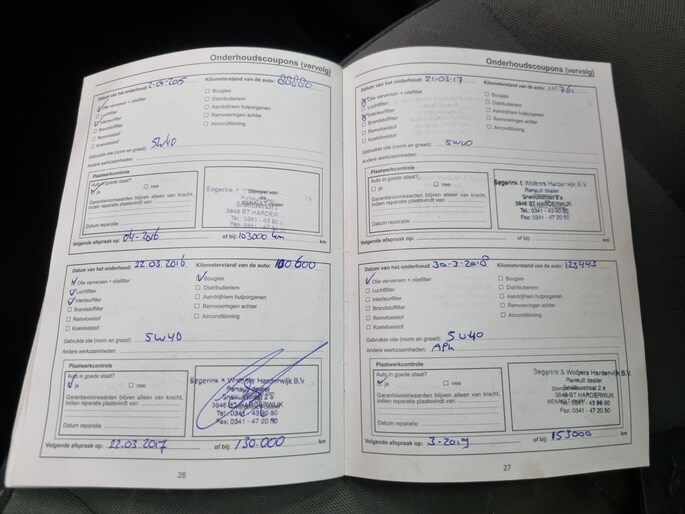 Onderhoudscoupons (vervolg)
Datum van het onderhoud: 2-04-2015 Kilometerstand van de auto:
Olie verversen + oliefilter Bougies
Luchtfilter Distributieriem
Interieurfilter Aandrijfriem hulporganen
Brandstoffilter Remvoeringen achter
Remvloeistof Airconditioning
Koelvloeistof
Gebruikte olie (norm en graad): 5W40
Andere werkzaamheden:
Plaatwerkcontrole
Auto in goede staat?
ja nee
Garantievoorwaarden blijven alleen van kracht,
indien reparatie plaatsvindt van:
Datum reparatie:
Stempel van
de
RENAULT-dealer
Segerink & Wolbers
3848 BT HARDER
Tel.: 0341 - 43 90 80
Fax: 0341 - 47 20 50
Volgende afspraak op: 04-2016 of bij: 103000 km km
Datum van het onderhoud: 22.03.2016 Kilometerstand van de auto: 100.600
Olie verversen + oliefilter Bougies
Luchtfilter Distributieriem
Interieurfilter Aandrijfriem hulporganen
Brandstoffilter Remvoeringen achter
Remvloeistof Airconditioning
Koelvloeistof
Gebruikte olie (norm en graad): 5W40
Andere werkzaamheden:
Plaatwerkcontrole
Auto in goede staat?
ja nee
Garantievoorwaarden blijven alleen van kracht,
indien reparatie plaatsvindt van:
Datum reparatie:
Segerink & Wolbers Harderwijk B.V.
Renault dealer
Snelliusstraat 2 a
3848 BT HARDERWIJK
Tel.: 0341 - 43 90 80
Fax: 0341 - 47 20 50
Volgende afspraak op: 22.03.2017 of bij: 130.000 km
26
Onderhoudscoupons (vervolg)
Datum van het onderhoud: 21-03-17 Kilometerstand van de auto:
Olie verversen + oliefilter Bougies
Luchtfilter Distributieriem
Interieurfilter Aandrijfriem hulporganen
Brandstoffilter Remvoeringen achter
Remvloeistof Airconditioning
Koelvloeistof
Gebruikte olie (norm en graad): 5W40
Andere werkzaamheden:
Plaatwerkcontrole
Auto in goede staat?
ja nee
Garantievoorwaarden blijven alleen van kracht,
indien reparatie plaatsvindt van:
Datum reparatie:
Segerink & Wolbers Harderwijk B.V.
Renault dealer
Snelliusstraat 2 a
3848 BT HARDERWIJK
Tel.: 0341 - 43 90 80
Fax: 0341 - 47 20 50
Volgende afspraak op: of bij: km
Datum van het onderhoud: 30-3-2018 Kilometerstand van de auto: 123443
Olie verversen + oliefilter Bougies
Luchtfilter Distributieriem
Interieurfilter Aandrijfriem hulporganen
Brandstoffilter Remvoeringen achter
Remvloeistof Airconditioning
Koelvloeistof
Gebruikte olie (norm en graad): 5W40
Andere werkzaamheden: APk
Plaatwerkcontrole
Auto in goede staat?
ja nee
Garantievoorwaarden blijven alleen van kracht,
indien reparatie plaatsvindt van:
Datum reparatie:
Segerink & Wolbers Harderwijk B.V.
Renault dealer
Snelliusstraat 2 a
3848 BT HARDERWIJK
Tel.: 0341 - 43 90 80
Fax: 0341 - 47 20 50
Volgende afspraak op: 3-2019 of bij: 153000 km
27